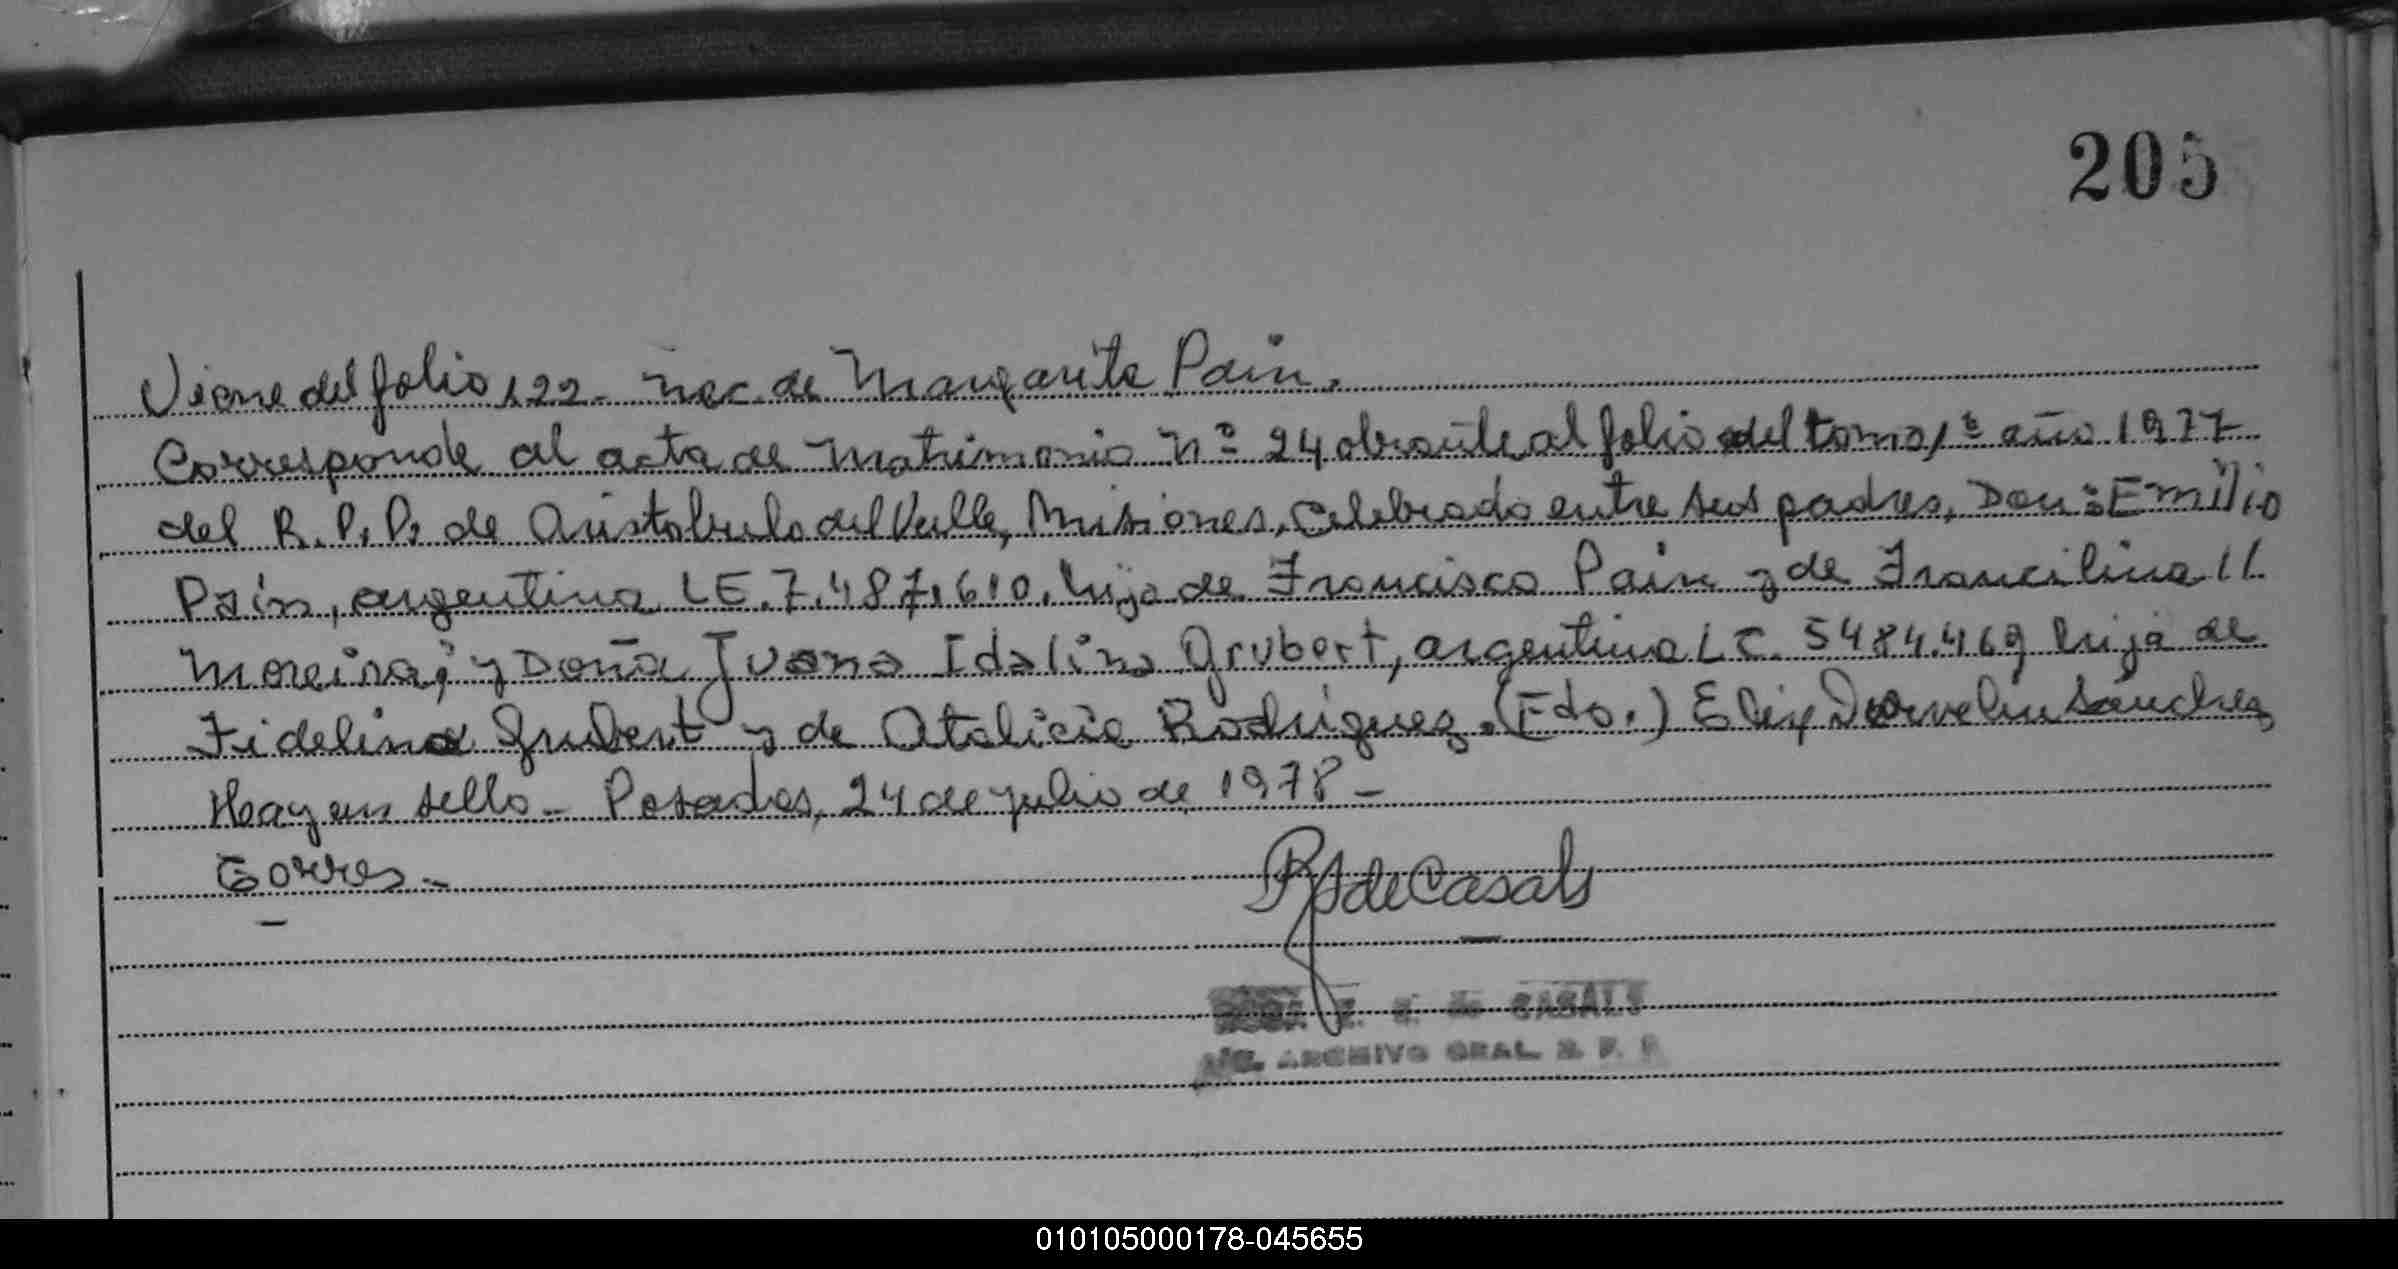 205
Viene del folio 122- nac. de Margarita Pain.
Corresponde al acta de Matrimonio Nº 24 obrante al folio del tomo 1º año 1977
del R. P. P. de Aristobulo del Valle, Misiones, Celebrado entre sus padres, Don: Emilio
Pain, argentino LE. 7.487.610. hijo de Francisco Pain y de Francilina
Moreira; y Doña Juana Idalina Grubert, argentina LC. 5484.469 hija de
Fidelino Grubert y de Atalicia Rodriguez. (Fdo.) Sánchez
Hay un sello- Posadas, 24 de julio de 1978-
Torres-
de Casals
CASALS
ARCHIVO GRAL. R. P. P.
010105000178-045655